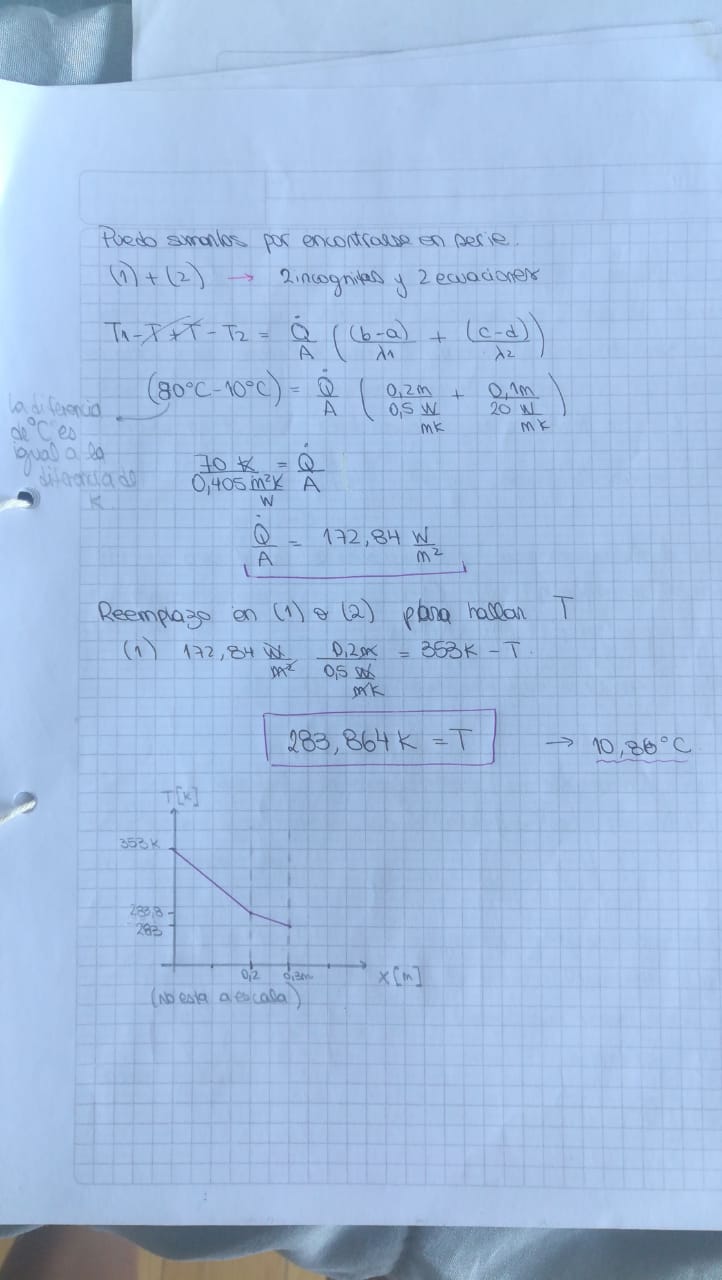 Puedo sumarlos por encontrarse en serie.
(1) + (2) → 2 incognitas y 2 ecuaciones
T1 - T + T - T2 = Q̇/A ( (b-a)/λ1 + (c-d)/λ2 )
(80°C - 10°C) = Q̇/A ( 0,2m / 0,5 W/mK + 0,1m / 20 W/mK )
La diferencia
de °C es
igual a la
diferencia de
K
70 K / 0,405 m²K/W = Q̇/A
Q̇/A = 172,84 W/m²
Reemplazo en (1) o (2) para hallar T
(1) 172,84 W/m² 0,2m / 0,5 W/mK = 353K - T
283,864 K = T → 10,86°C
T[K]
353K
283,8
283
0,2 0,3m X[m]
(No esta a escala)